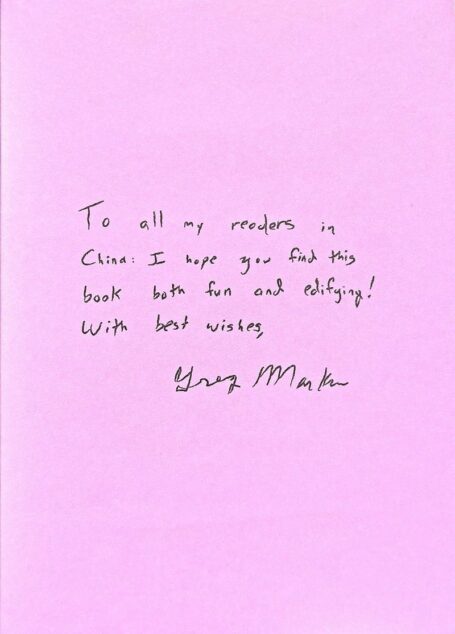 To all my readers in
China: I hope you find this
book both fun and edifying!
With best wishes,
Greg